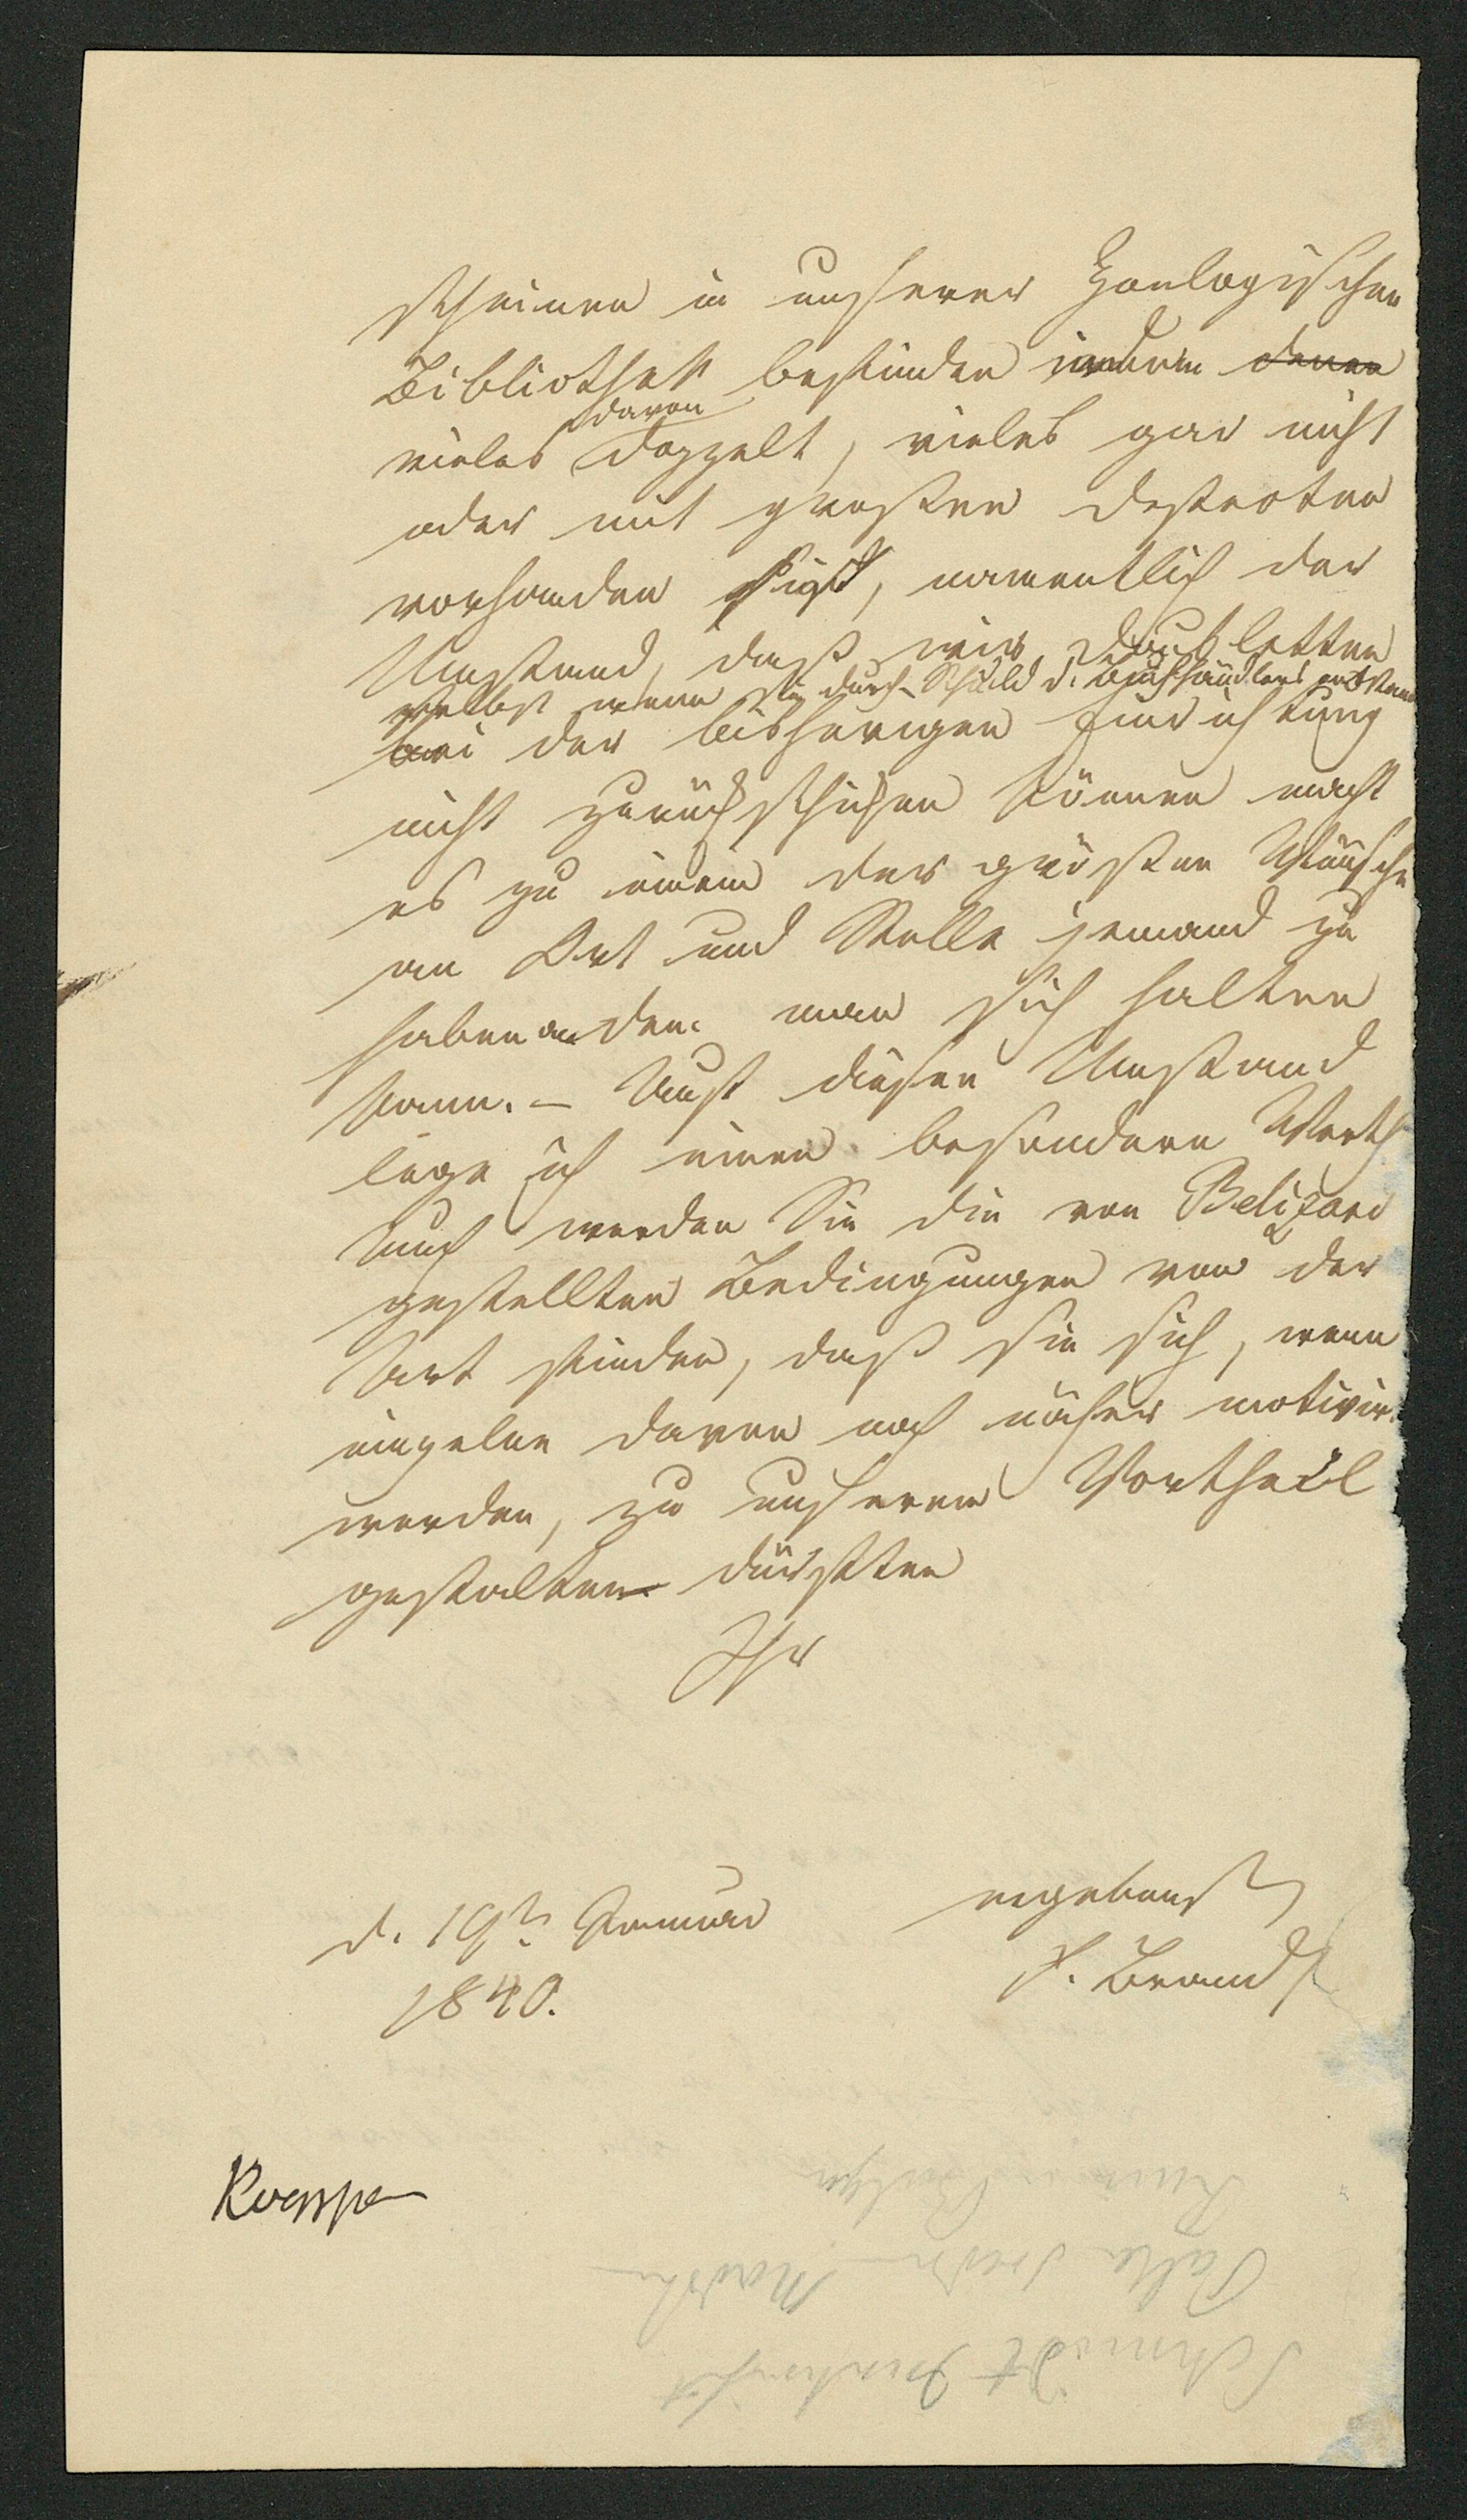 scheinen in unserer Zoologischen
Bibliothek befinden indem denen
davon
vieles doppelt, vieles gar nicht
oder mit grossen Defecten
vorhanden ist, namentlich der
Umstand, dass wir Doubletten
selbst wenn sie durch Schuld d. Buchhändlers entstanden
bei der bisherigen Einrichtung
nicht zurückschicken können macht
es zu einem der grössten Wünsche
an Ort und Stelle jemand zu
haben an den man sich halten
kann. – Auf diesen Umstand
lege ich einen besondern Werth
Auch werden Sie die von Belizard
gestellten Bedingungen von der
Art finden, dass sie sich, wenn
einzelne davon noch näher motivirt
werden, zu unserem Vortheil
gestalten dürften
Ihr
ergebenster
d. 19t. Januar
F. Brandt
1840.
Koeppen
Schmidt